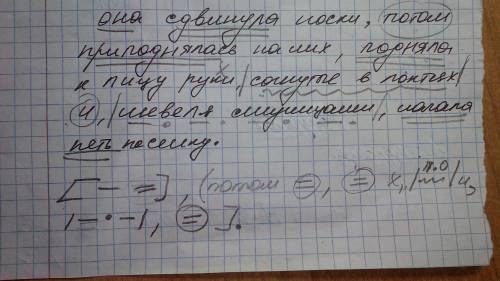 она сдвинула носки, потом
приподнялась на них, подняла
к лицу руки, согнутые в локтях
и, шевеля ... , начала
петь песенку.
[— =], (потом =, = х, |п.о| и,
|—·—|, = ].